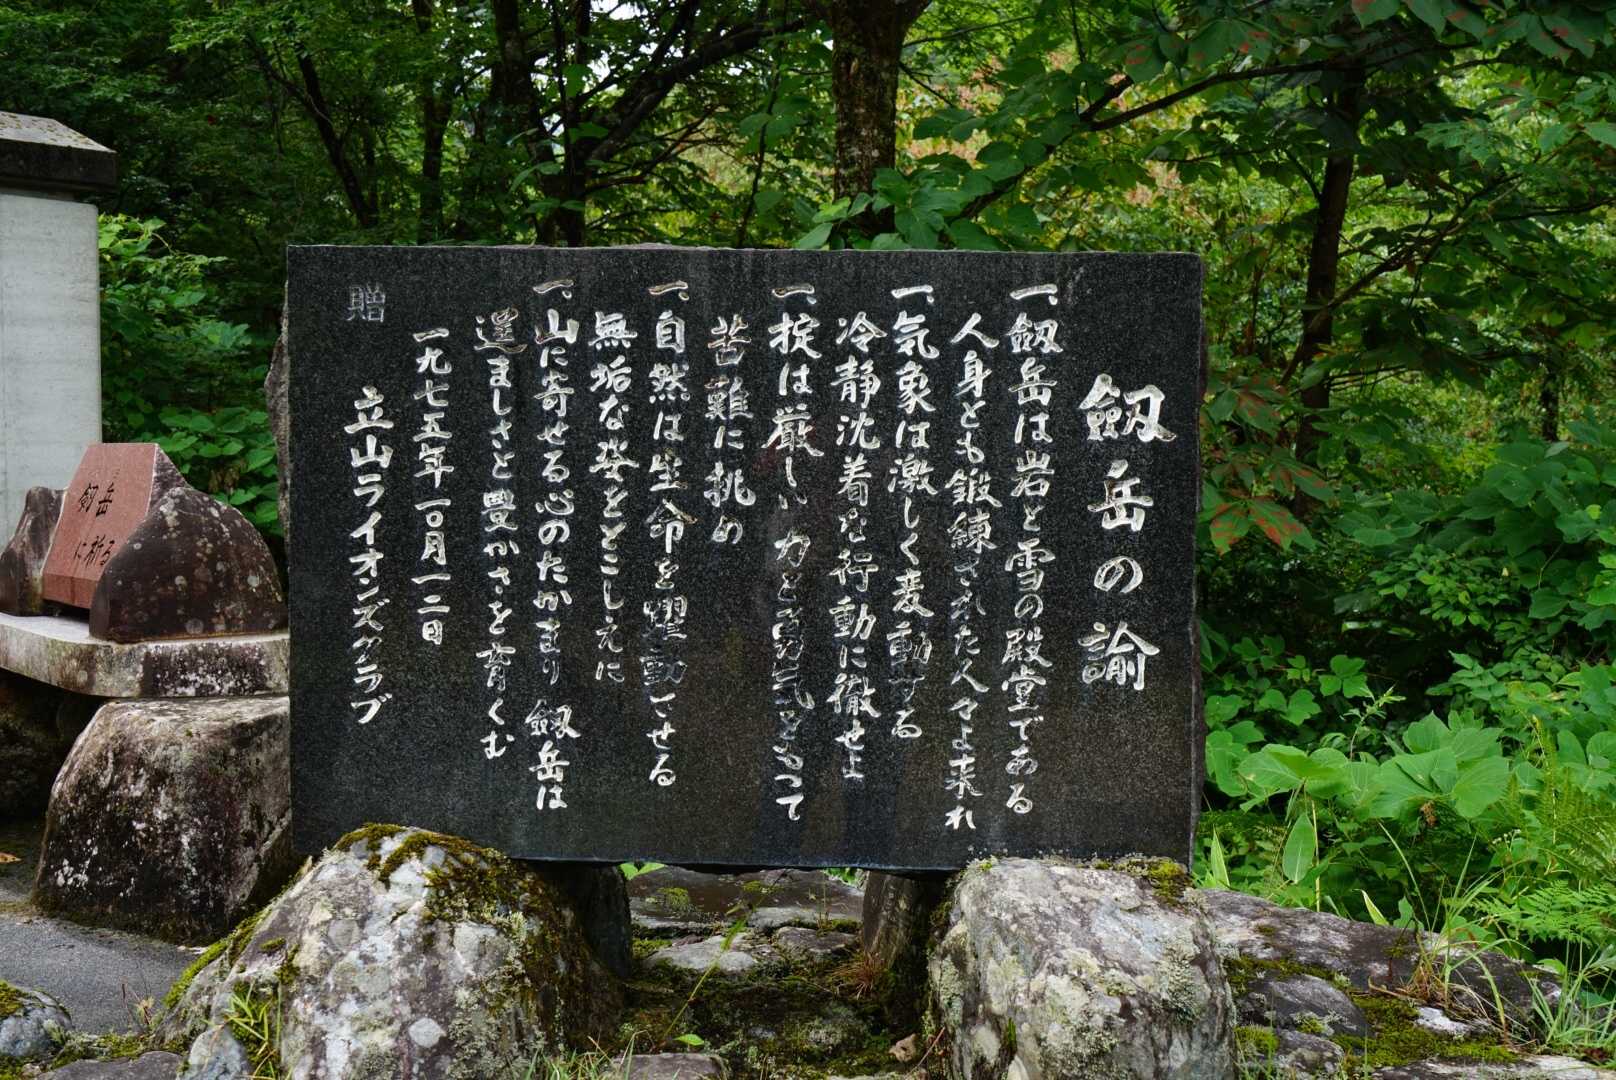 劔岳の諭
一、劔岳は岩と雪の殿堂である
人身とも鍛錬された人々よ来れ
一、気象は激しく変動する
冷静沈着な行動に徹せよ
一、掟は厳しい 力と勇気をもって
苦難に挑め
一、自然は生命を躍動させる
無垢な姿をとこしえに
一、山に寄せる心のたかまり 劔岳は
逞ましさと豊かさを育くむ
一九七五年一〇月一二日
贈
立山ライオンズクラブ
劔岳
に祈る